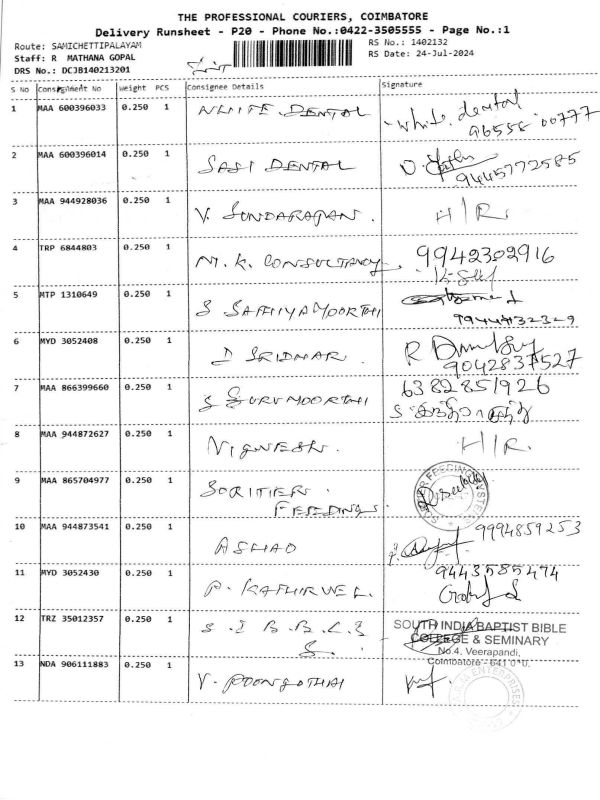 THE PROFESSIONAL COURIERS, COIMBATORE
Delivery Runsheet - P20 - Phone No.:0422-3505555 - Page No.:1
Route: SAMICHETTIPALAYAM
RS No.: 1402132
Staff: R MATHANA GOPAL
RS Date: 24-Jul-2024
DRS No.: DCJB140213201
S No Consignment No Weight PCS Consignee Details Signature
1 MAA 600396033 0.250 1 WHITE DENTAL White dental
96555 00777
2 MAA 600396014 0.250 1 SASI DENTAL
9445772585
3 MAA 944928036 0.250 1 V. SUNDARAJAN. H/R.
4 TRP 6844803 0.250 1 M. K. CONSULTANCY 9942302916
5 MTP 1310649 0.250 1 S SATHIYAMOORTHI
6 MYD 3052408 0.250 1 SRIDHAR. R
9042837527
7 MAA 866399660 0.250 1 S GURUMOORTHI 6382851926
8 MAA 944872627 0.250 1 VIGNESH. H/R.
9 MAA 865704977 0.250 1
FEEDINGS
10 MAA 944873541 0.250 1 9994859253
11 MYD 3052430 0.250 1 P. KATHIRVEL. 9443585474
12 TRZ 35012357 0.250 1 S. I B. B. C. &
S. SOUTH INDIA BAPTIST BIBLE
COLLEGE & SEMINARY
No.4, Veerapandi,
Coimbatore - 641 0
13 NDA 906111883 0.250 1 V. POONGOTHAI
ENTERPRISES